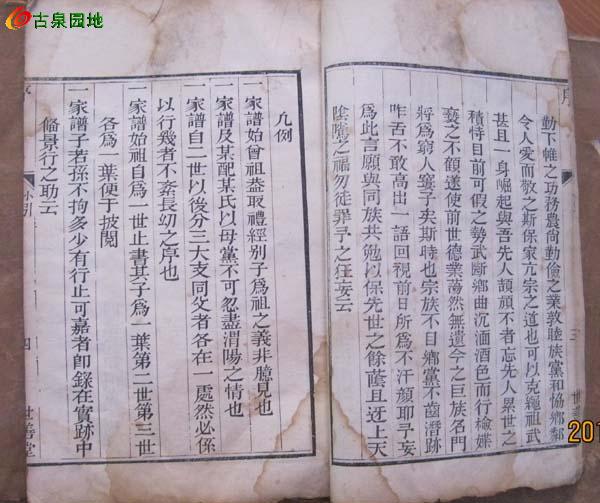 古泉园地
序
勤下帷之功務農尚勤儉之業敦睦族黨和恊鄉鄰
令人愛而敬之斯保家亢宗之道也可以克繩祖武
甚且一身崛起與吾先人頡頏不者忘先人累世之
積恃目前可假之勢武斷鄉曲沉湎酒色而行檢媟
褻之不顧遂使前世德業蕩然無遺今之巨族名門
將爲窮人寠子矣斯時也宗族不目鄉黨不齒潛跡
咋舌不敢高出一語回視前日所爲不汗顏耶予妄
爲此言願與同族共勉以保先世之餘蔭且迓上天
陰隲之福勿徒罪予之狂妄云
三
世善
201
凡例
一家譜始曾祖葢取禮經別子爲祖之義非臆見也
一家譜及某配某氏以母黨不可忽盡渭陽之情也
一家譜自二世以後分三大支同父者各在一處然必係
以行幾者不紊長幼之序也
一家譜始祖自爲一世止書其子爲一葉第二世第三世
各爲一葉便于披閱
一家譜子若孫不拘多少有行止可嘉者卽錄在實跡中
偹景行之助云
小引
四
世善堂